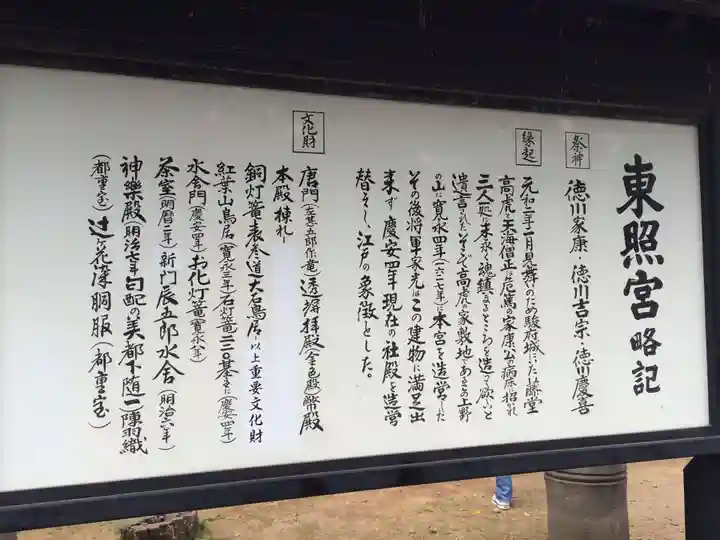 東照宮略記
祭神
徳川家康・徳川吉宗・徳川慶喜
縁起
元和二年二月見舞のため駿府城にいた藤堂
高虎と天海僧正は危篤の家康公の病床に招かれ
三人一処に末永く魂鎮まるところを造って欲しいと
遺言されたそこで高虎の家敷地であるこの上野
の山に寛永四年(一六二七年)に本宮を造営した
その後将軍家光はこの建物に満足出
来ず慶安四年現在の社殿を造営
替えし、江戸の象徴とした。
文化財
唐門(左甚五郎作竜)透塀拝殿(金色殿)幣殿
本殿棟札
銅灯篭表参道大石鳥居以上重要文化財
紅葉山鳥居(寛永三年)石灯篭二二〇基(慶安四年)
水舎門(慶安四年)お化灯篭(寛永八年)
茶室(明暦二年)新門辰五郎水舎(明治六年)
神樂殿(明治七年)勾配の美都下随一陣羽織
(都重宝)辻ヶ花染胴服(都重宝)